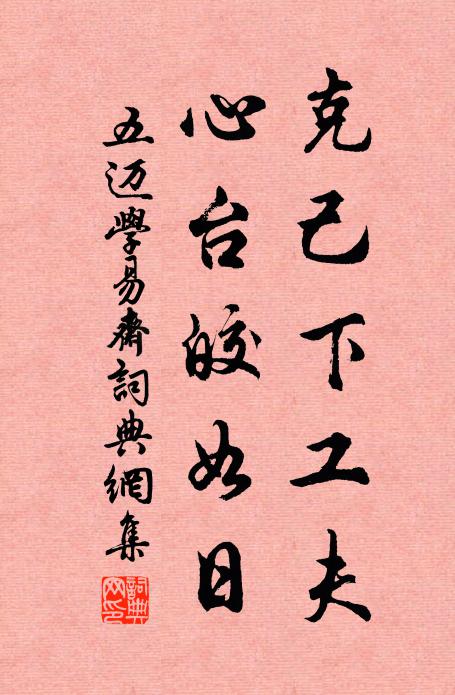 克己下工夫
心台皎如日
五迈學易齋詞典網集
詞典网印